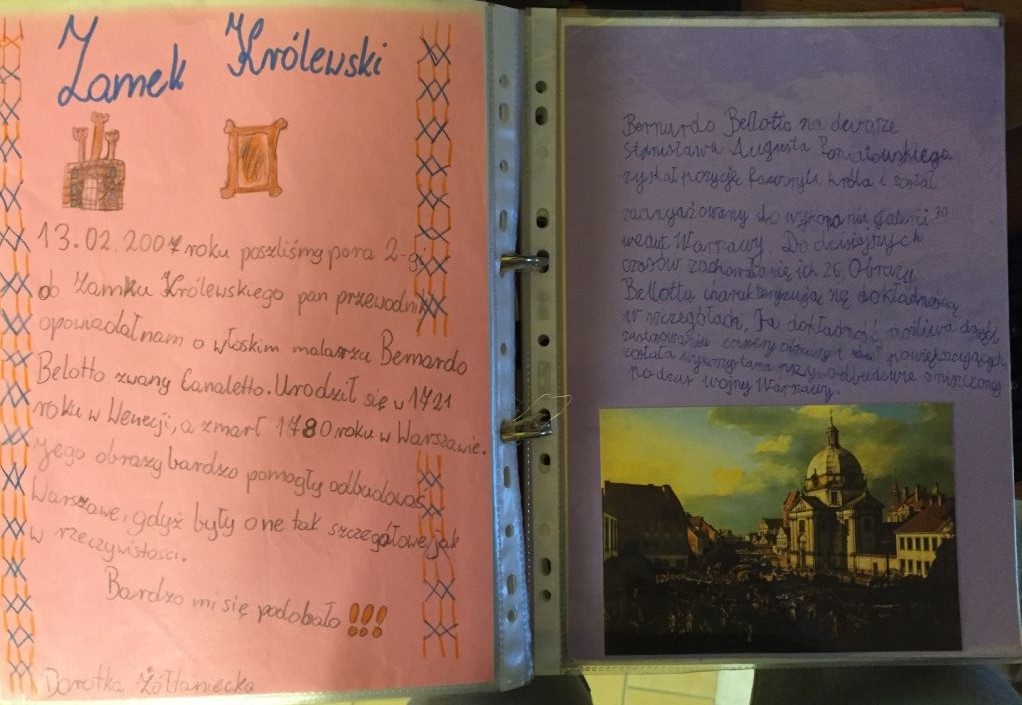 Zamek Królewski
13.02.2007 roku poszliśmy para 2-gi
do Zamku Królewskiego pan przewodnik
opowiadał nam o włoskim malarzu Bernardo
Belotto zwany Canaletto. Urodził się w 1721
roku w Wenecji, a zmarł 1780 roku w Warszawie.
Jego obrazy bardzo pomogły odbudować
Warszawe, gdyż były one tak szczegółowe jak
w rzeczywistości.
Bardzo mi się podobało !!!
Dorotka Żółtaniecka
Bernardo Bellotto na dworze
Stanisława Augusta Poniatowskiego
zyskał pozycję faworyta króla i został
zaangażowany do wykonania galerii 30
wedut Warszawy. Do dzisiejszych
czasów zachowało się ich 26. Obrazy
Bellotta charakteryzują się dokładnością
w szczegółach. Ta dokładność, możliwa dzięki
zastosowaniu camery obscury i powiększających
została wykorzystana przy odbudowie zniszczonej
podczas wojny Warszawy.